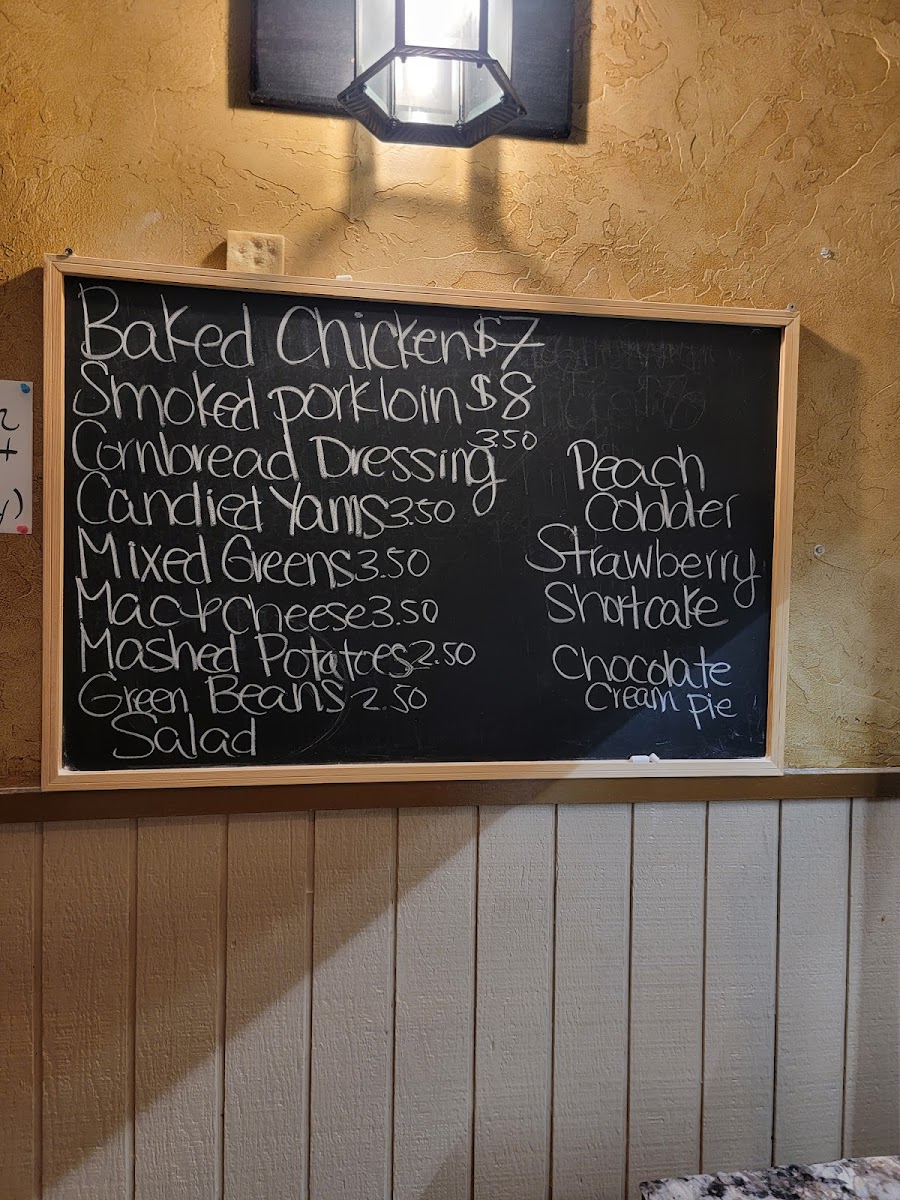 Baked Chicken $7
Smoked porkloin $8
Cornbread Dressing 3.50
Candied Yams 3.50
Mixed Greens 3.50
Mac & Cheese 3.50
Mashed Potatoes 2.50
Green Beans 2.50
Salad
Peach
Cobbler
Strawberry
Shortcake
Chocolate
Cream pie